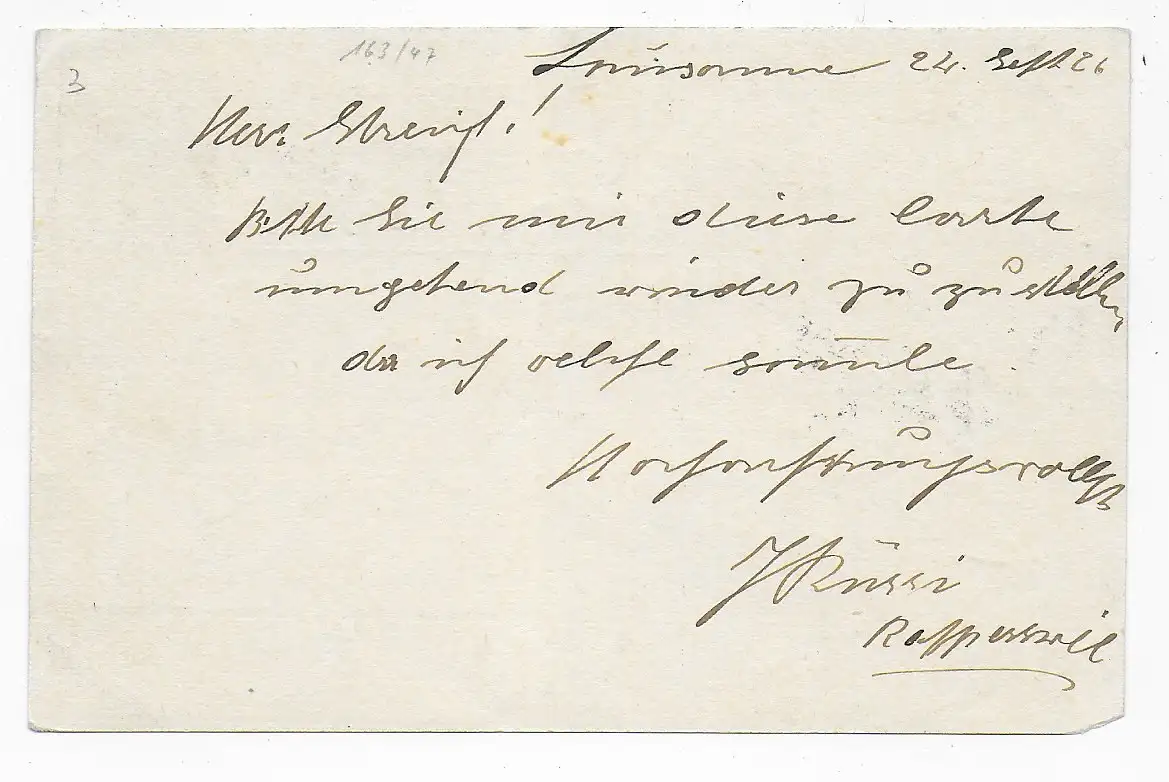 163/47
3
Lausanne 24. Sept. 26
Herr Streiff!
Bitte Sie mir diese Carte
umgehend wieder zu zustellen
da ich selche sammle.
Hochachtungsvollst
J Rüssi
Rapperswil